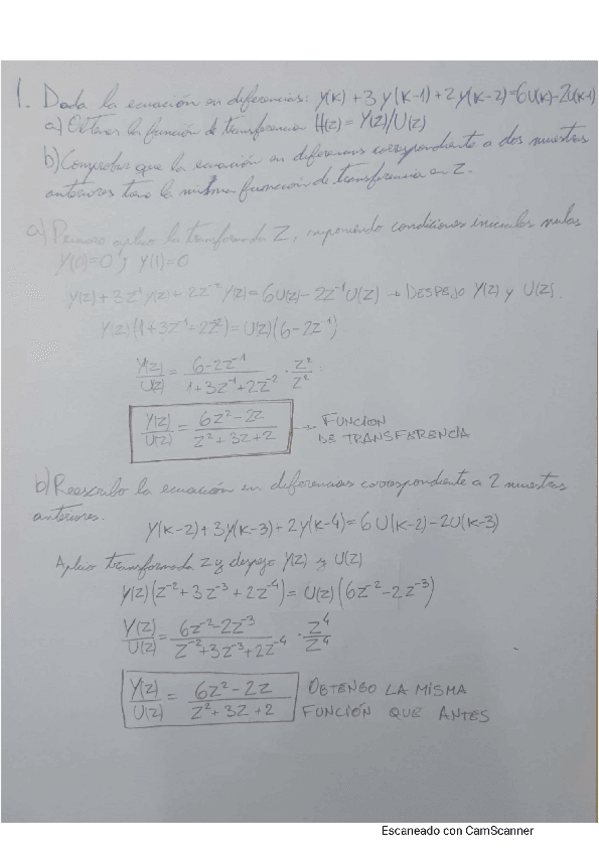 1. Dada la ecuación en diferencias: y(k)+3y(k-1)+2y(k-2)=6U(k)-2U(k-1)
a) Obtener la función de transferencia H(z)=Y(z)/U(z)
b) Comprobar que la ecuación en diferencias correspondiente a dos muestras
anteriores tiene la misma función de transferencia en Z.
a) Primero aplico la transformada Z, suponiendo condiciones iniciales nulas
y(0)=0 ; y(1)=0
Y(z)+3z⁻¹Y(z)+2z⁻²Y(z)=6U(z)-2z⁻¹U(z) → DESPEJO Y(z) y U(z).
Y(z)(1+3z⁻¹+2z⁻²)=U(z)(6-2z⁻¹)
Y(z)/U(z) = (6-2z⁻¹)/(1+3z⁻¹+2z⁻²) · z²/z²
Y(z)/U(z) = (6z²-2z)/(z²+3z+2) → FUNCION
DE TRANSFERENCIA
b) Reescribo la ecuación en diferencias correspondiente a 2 muestras
anteriores.
y(k-2)+3y(k-3)+2y(k-4)=6U(k-2)-2U(k-3)
Aplico transformada z y despejo Y(z) y U(z)
Y(z)(z⁻²+3z⁻³+2z⁻⁴)=U(z)(6z⁻²-2z⁻³)
Y(z)/U(z) = (6z⁻²-2z⁻³)/(z⁻²+3z⁻³+2z⁻⁴) · z⁴/z⁴
Y(z)/U(z) = (6z²-2z)/(z²+3z+2) OBTENGO LA MISMA
FUNCIÓN QUE ANTES
Escaneado con CamScanner